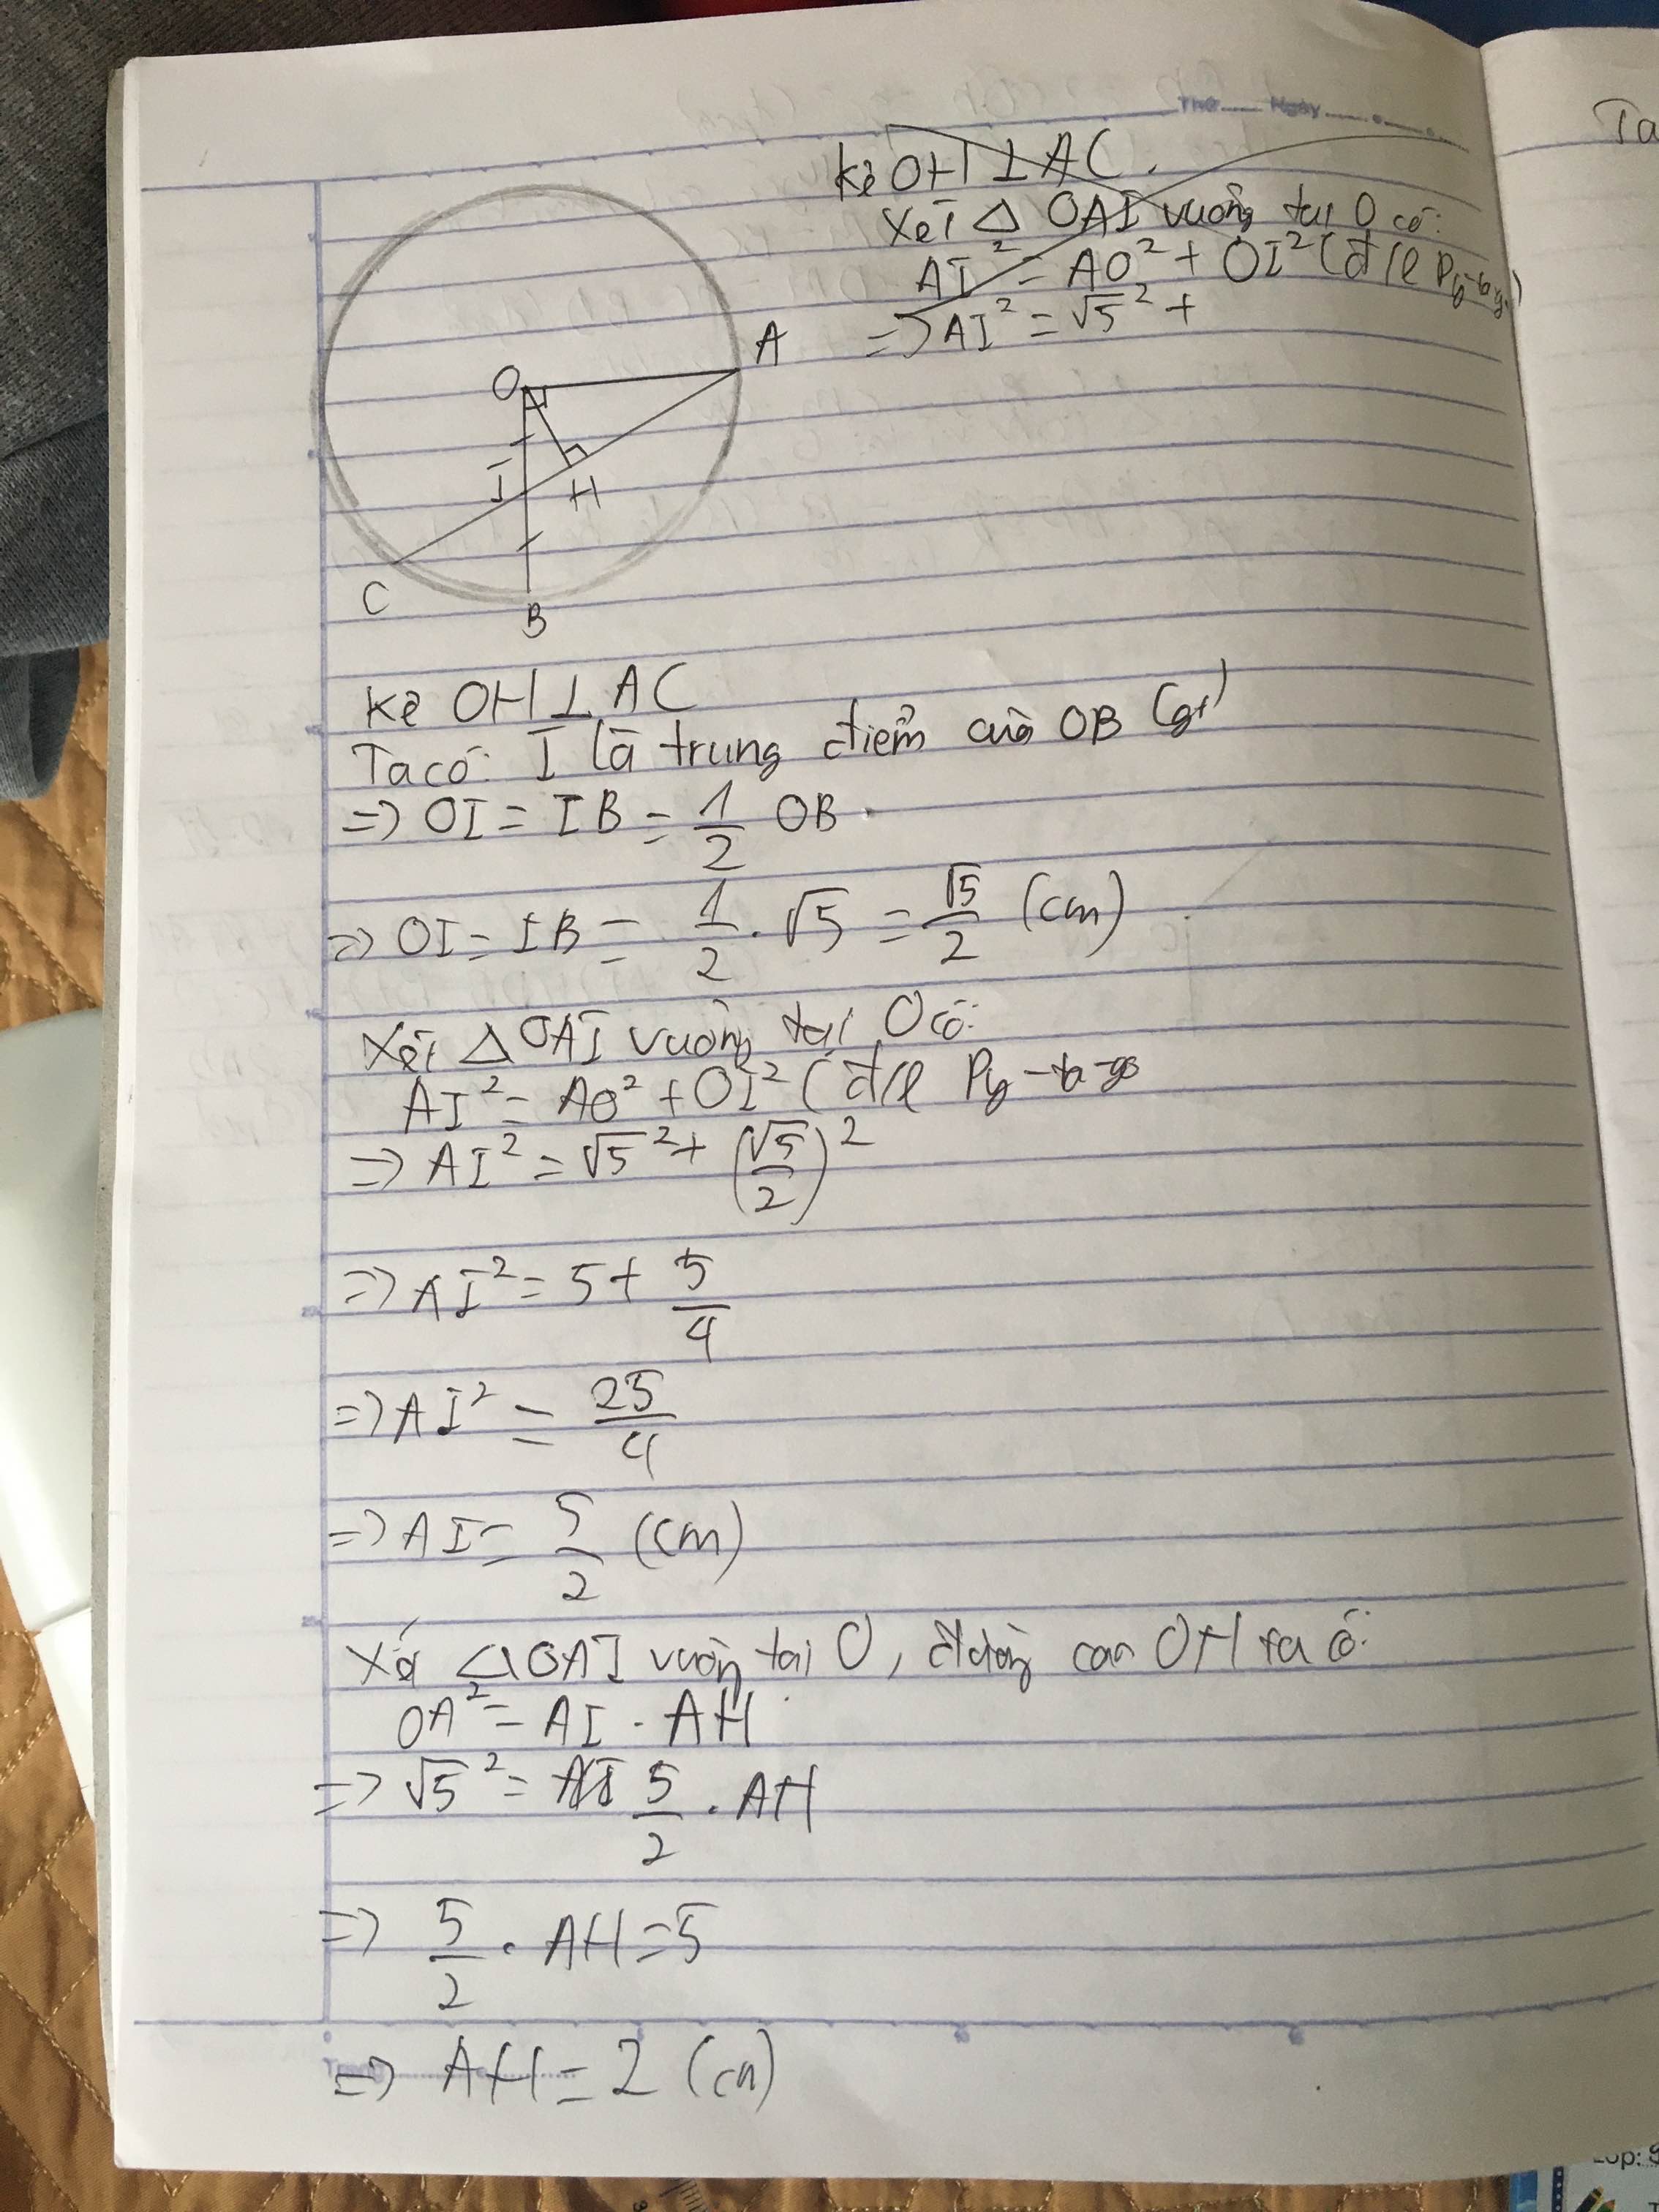 Thứ Ngày
Ta
Kẻ OH ⊥ AC.
Xét Δ OAI vuông tại O có:
AI² = AO² + OI² (đ/l Py-ta-go)
=> AI² = √5² +
A
O
I
H
C
B
Kẻ OH ⊥ AC
Ta có: I là trung điểm của OB (gt)
=> OI = IB = 1/2 OB
=> OI = IB = 1/2 . √5 = √5/2 (cm)
Xét Δ OAI vuông tại O có:
AI² = AO² + OI² (đ/l Py-ta-go
=> AI² = √5² + (√5/2)²
=> AI² = 5 + 5/4
=> AI² = 25/4
=> AI = 5/2 (cm)
Xét Δ OAI vuông tại O, đường cao OH ta có:
OA² = AI . AH
=> √5² = 5/2 . AH
=> 5/2 . AH = 5
=> AH = 2 (cm)
Trang
Lớp: 9